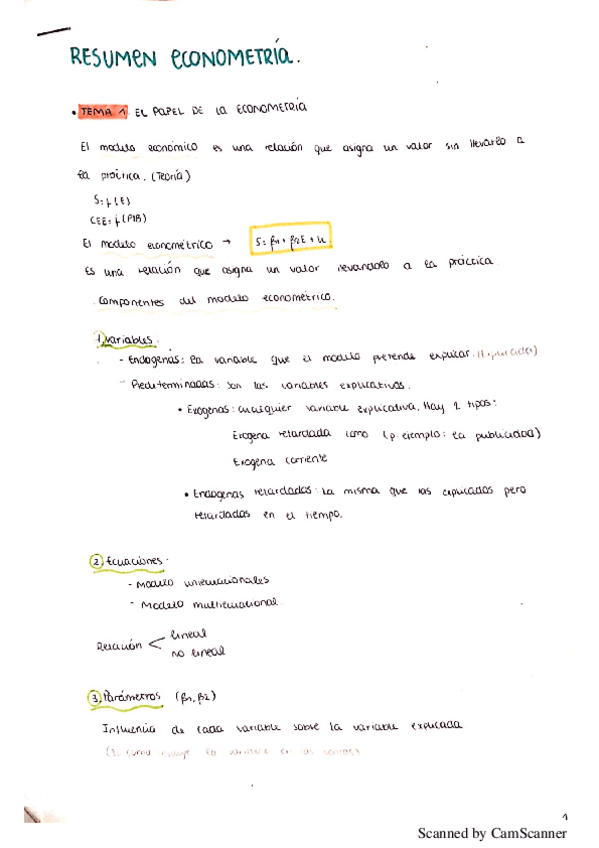 RESUMEN ECONOMETRÍA.
• TEMA 1 EL PAPEL DE LA ECONOMETRÍA
El modelo económico es una relación que asigna un valor sin llevarlo a
la práctica. (Teoría)
S=f(E)
CEE=f(PIB)
El modelo econométrico → S=β1+β2E+u
Es una relación que asigna un valor llevandolo a la práctica
Componentes del modelo econométrico.
1, variables.
- Endogenas: la variable que el modelo pretende explicar. (Explicadas)
- Predeterminadas: son las variables explicativas.
• Exogenas: cualquier variable explicativa. Hay 2 tipos:
Exogena retardada como (p. ejemplo: la publicidad)
Exogena corriente
• Endogenas retardadas: La misma que las explicadas pero
retardadas en el tiempo.
2, Ecuaciones.
- Modelo uniecuacionales
- Modelo multiecuacional
Relación < lineal
no lineal
3, Parámetros (β1, β2)
Influencia de cada variable sobre la variable explicada
la variable en las
1
Scanned by CamScanner